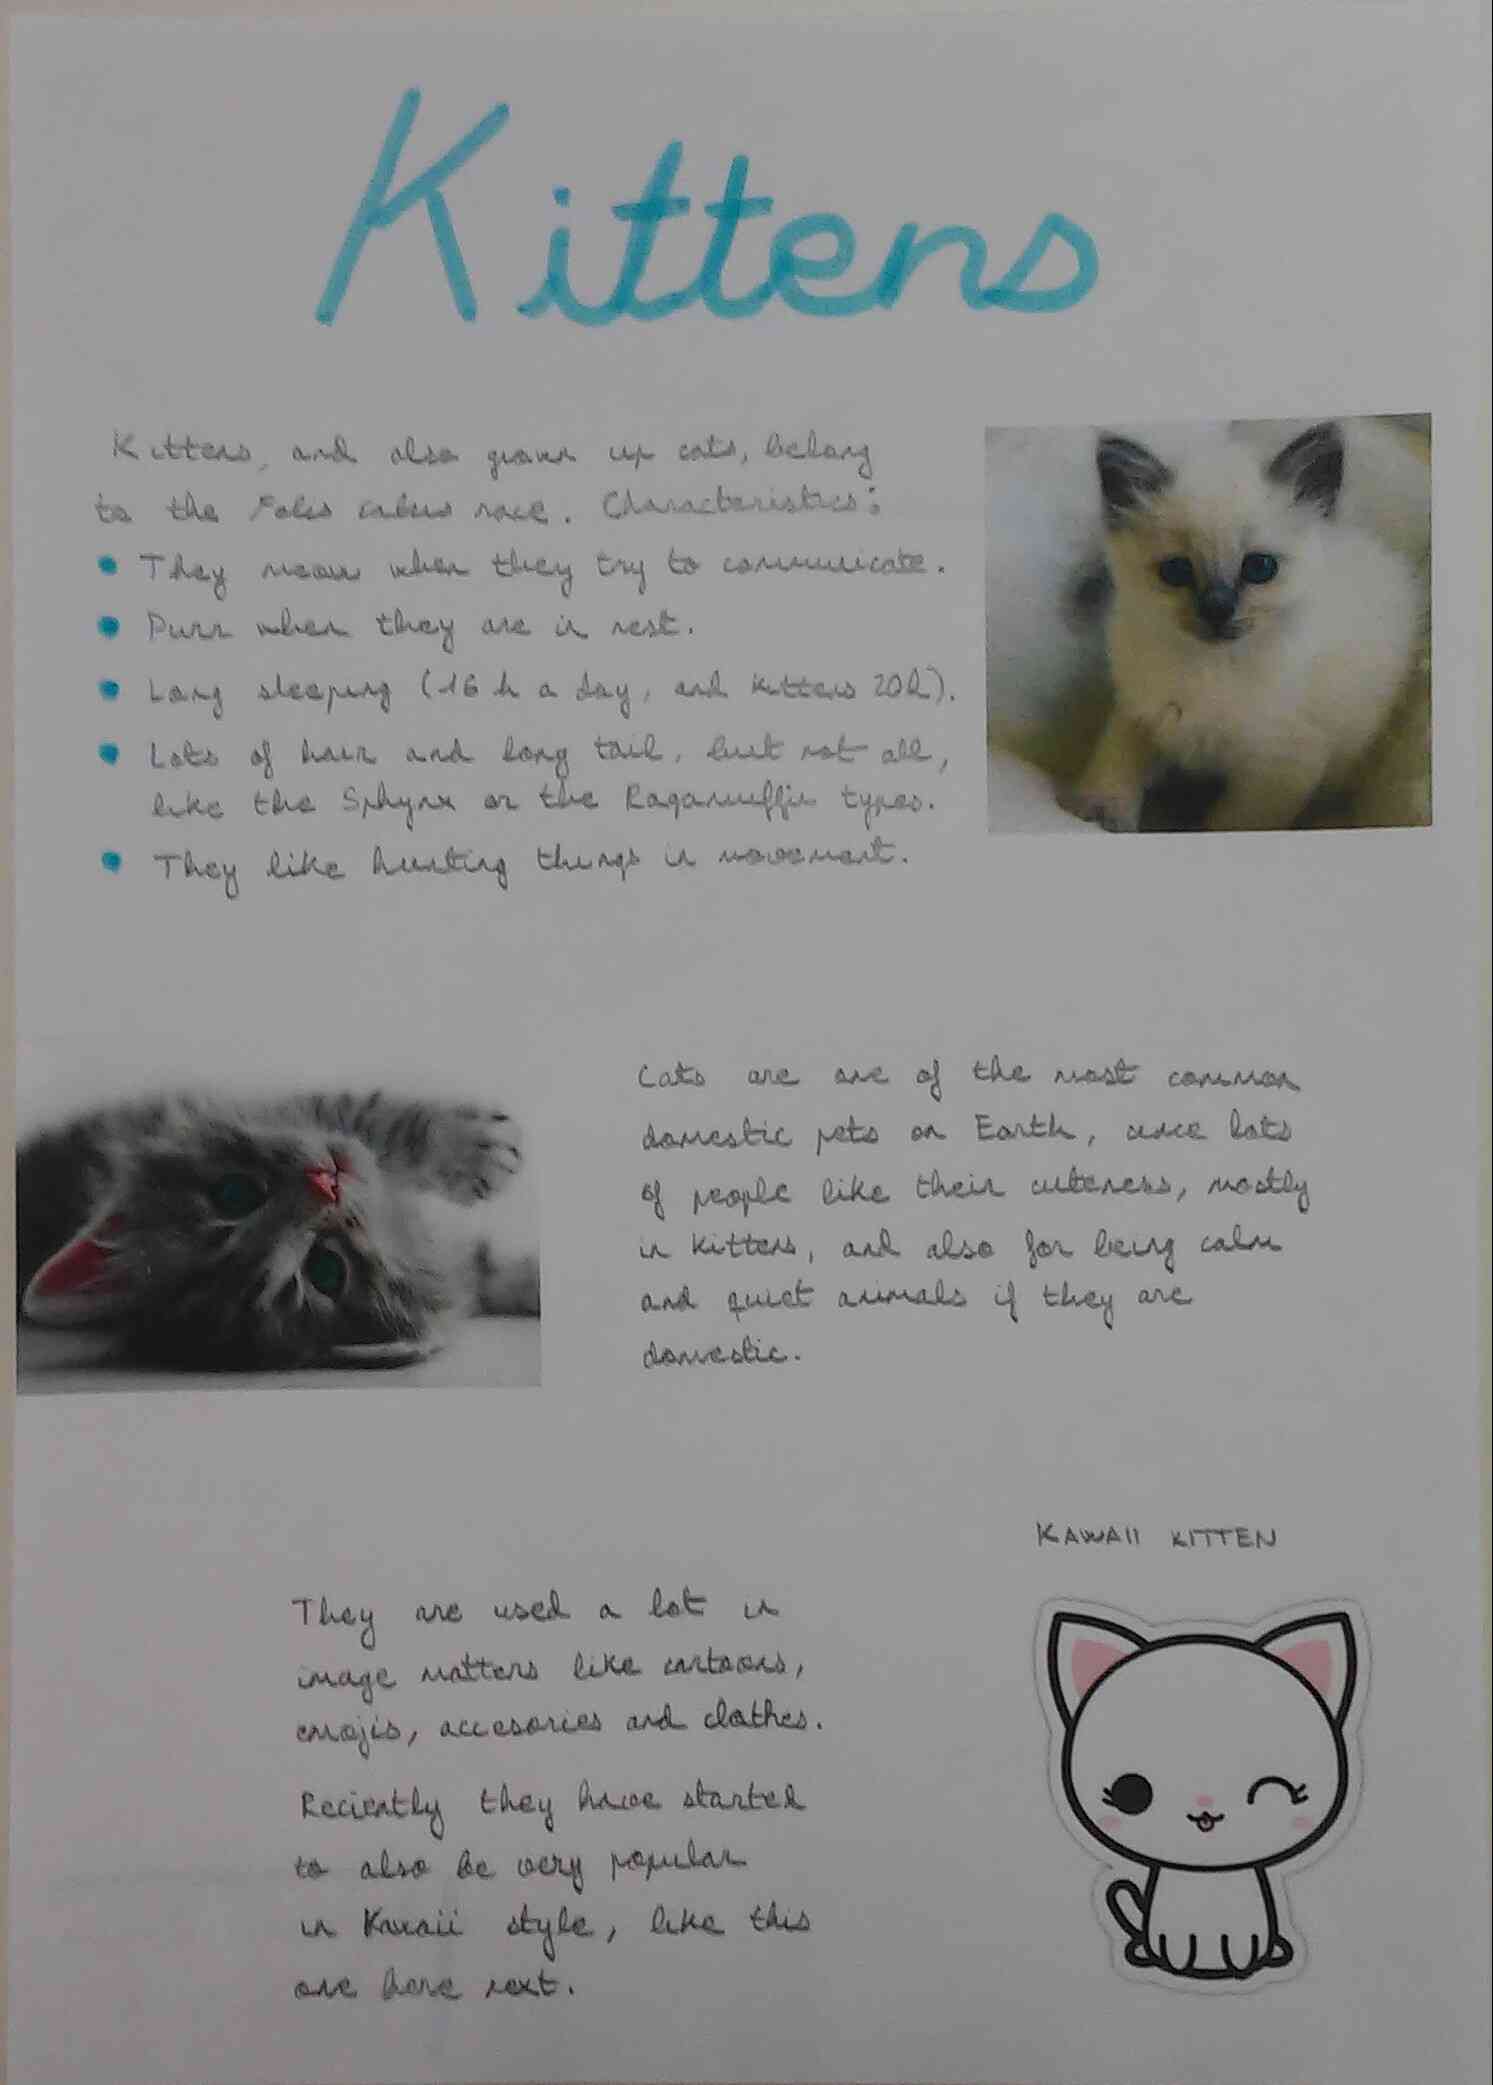 Kittens
Kittens, and also grown up cats, belong
to the Felis catus race. Characteristics:
They meow when they try to communicate.
Purr when they are in rest.
Long sleeping (16 h a day, and kittens 20h).
Lots of hair and long tail, but not all,
like the Sphynx or the Ragamuffin types.
They like hunting things in movement.
Cats are one of the most common
domestic pets on Earth, since lots
of people like their cuteness, mostly
in kittens, and also for being calm
and quiet animals if they are
domestic.
KAWAII KITTEN
They are used a lot in
image matters like cartoons,
emojis, accesories and clothes.
Reciently they have started
to also be very popular
in Kawaii style, like this
one here next.